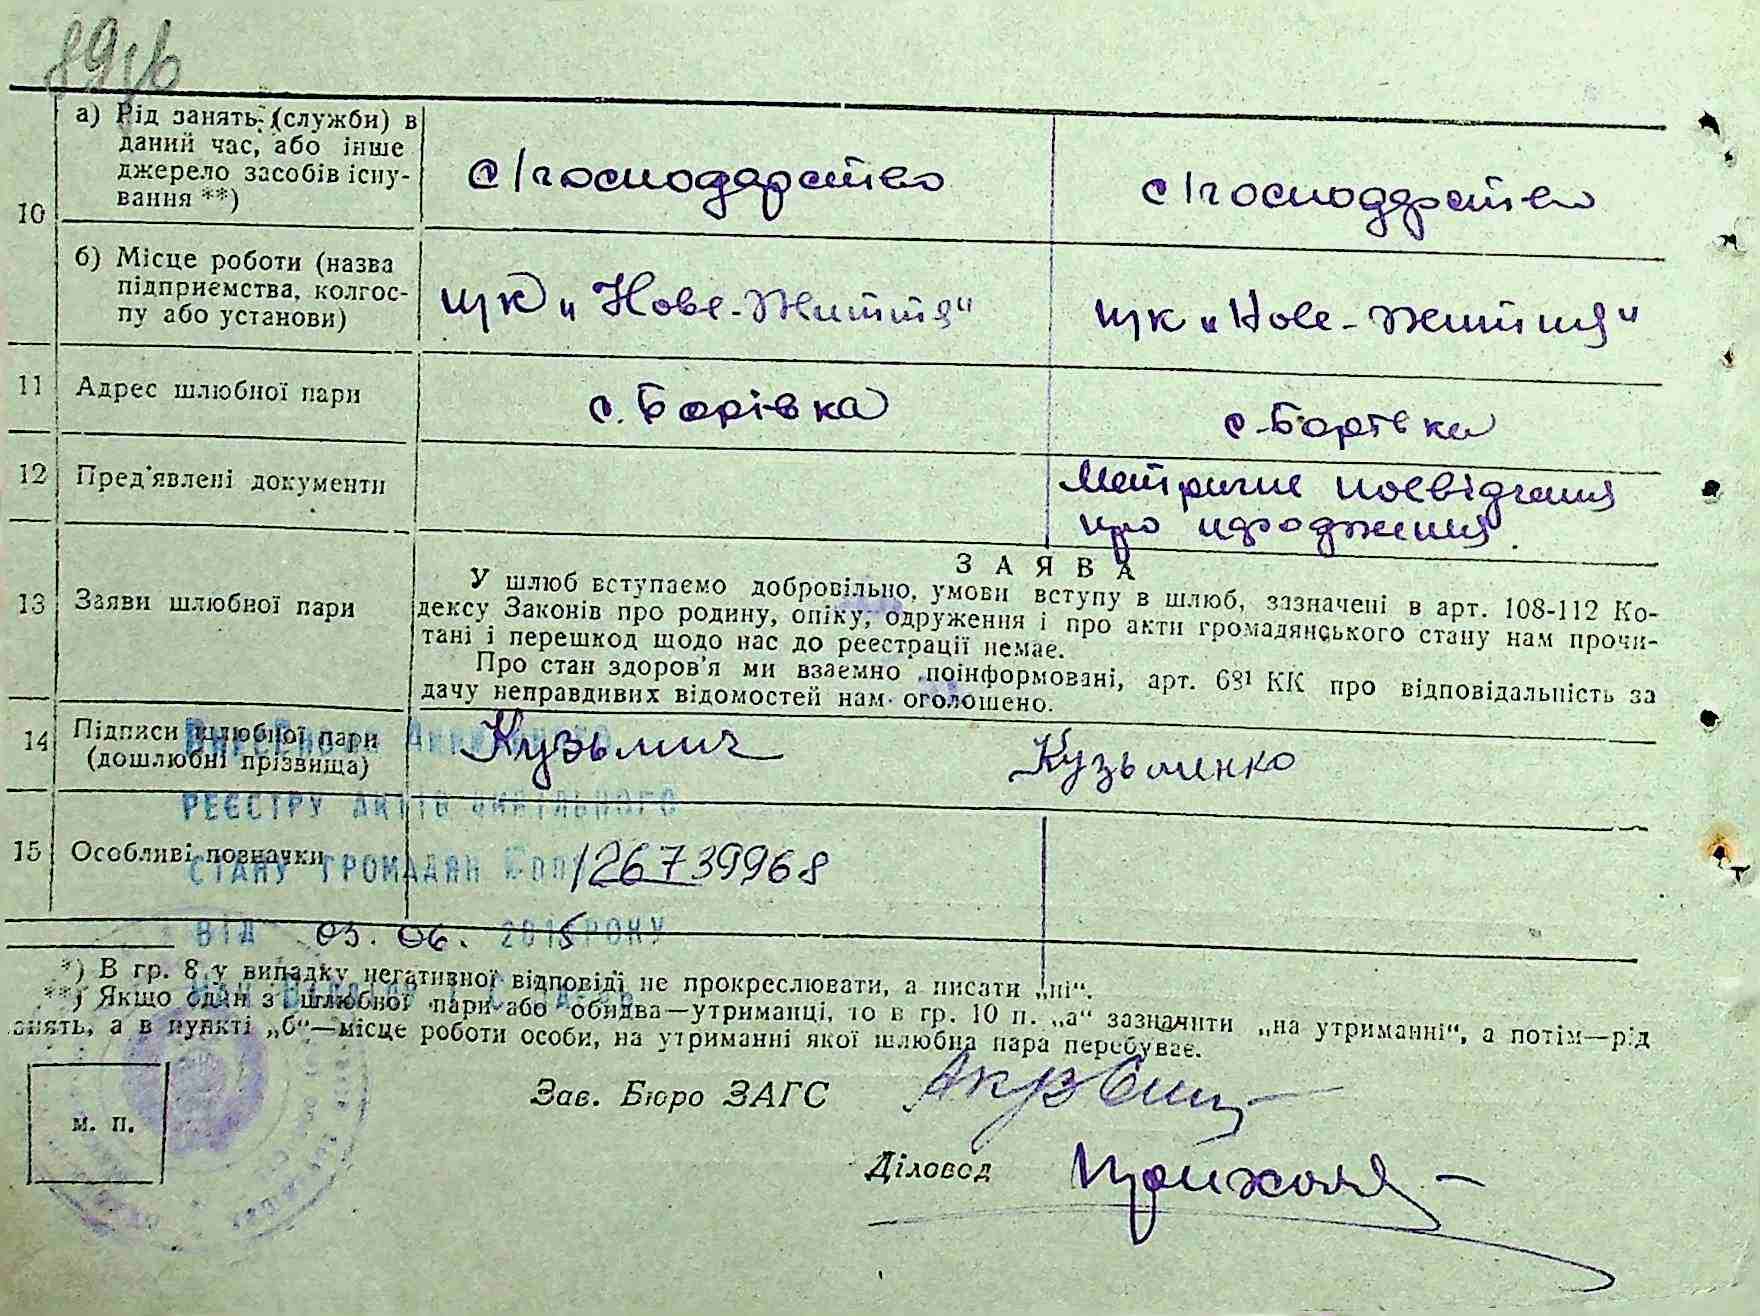 а) Рід занять (служби) в
даний час, або інше
джерело засобів існу-
вання **)
с/господарство
с/господарство
10
б) Місце роботи (назва
підприємства, колгос-
пу або установи)
щк „Нове-Життя"
щк „Нове-Життя"
11
Адрес шлюбної пари
с. Борівка
с. Борівка
12
Пред'явлені документи
про народження.
13
Заяви шлюбної пари
ЗАЯВА
У шлюб вступаємо добровільно, умови вступу в шлюб, зазначені в арт. 108-112 Ко-
дексу Законів про родину, опіку, одруження і про акти громадянського стану нам прочи-
тані і перешкод щодо нас до реєстрації немає.
Про стан здоров'я ми взаємно поінформовані, арт. 68¹ КК про відповідальність за
дачу неправдивих відомостей нам оголошено.
14
Підписи шлюбної пари
(дошлюбні прізвища)
Кузьмич
Кузьменко
РЕЄСТРУ АКТІВ ЦИВІЛЬНОГО
15
Особливі позначки
СТАНУ ГРОМАДЯН
126739968
ВІД 03.06. 2015 РОКУ
*) В гр. 8 у випадку негативної відповіді не прокреслювати, а писати „ні".
**) Якщо один з шлюбної пари або обидва—утриманці, то в гр. 10 п. „а" зазначити „на утриманні", а потім—рід
занять, а в пункті „б"—місце роботи особи, на утриманні якої шлюбна пара перебуває.
м. п.
Зав. Бюро ЗАГС
Діловод